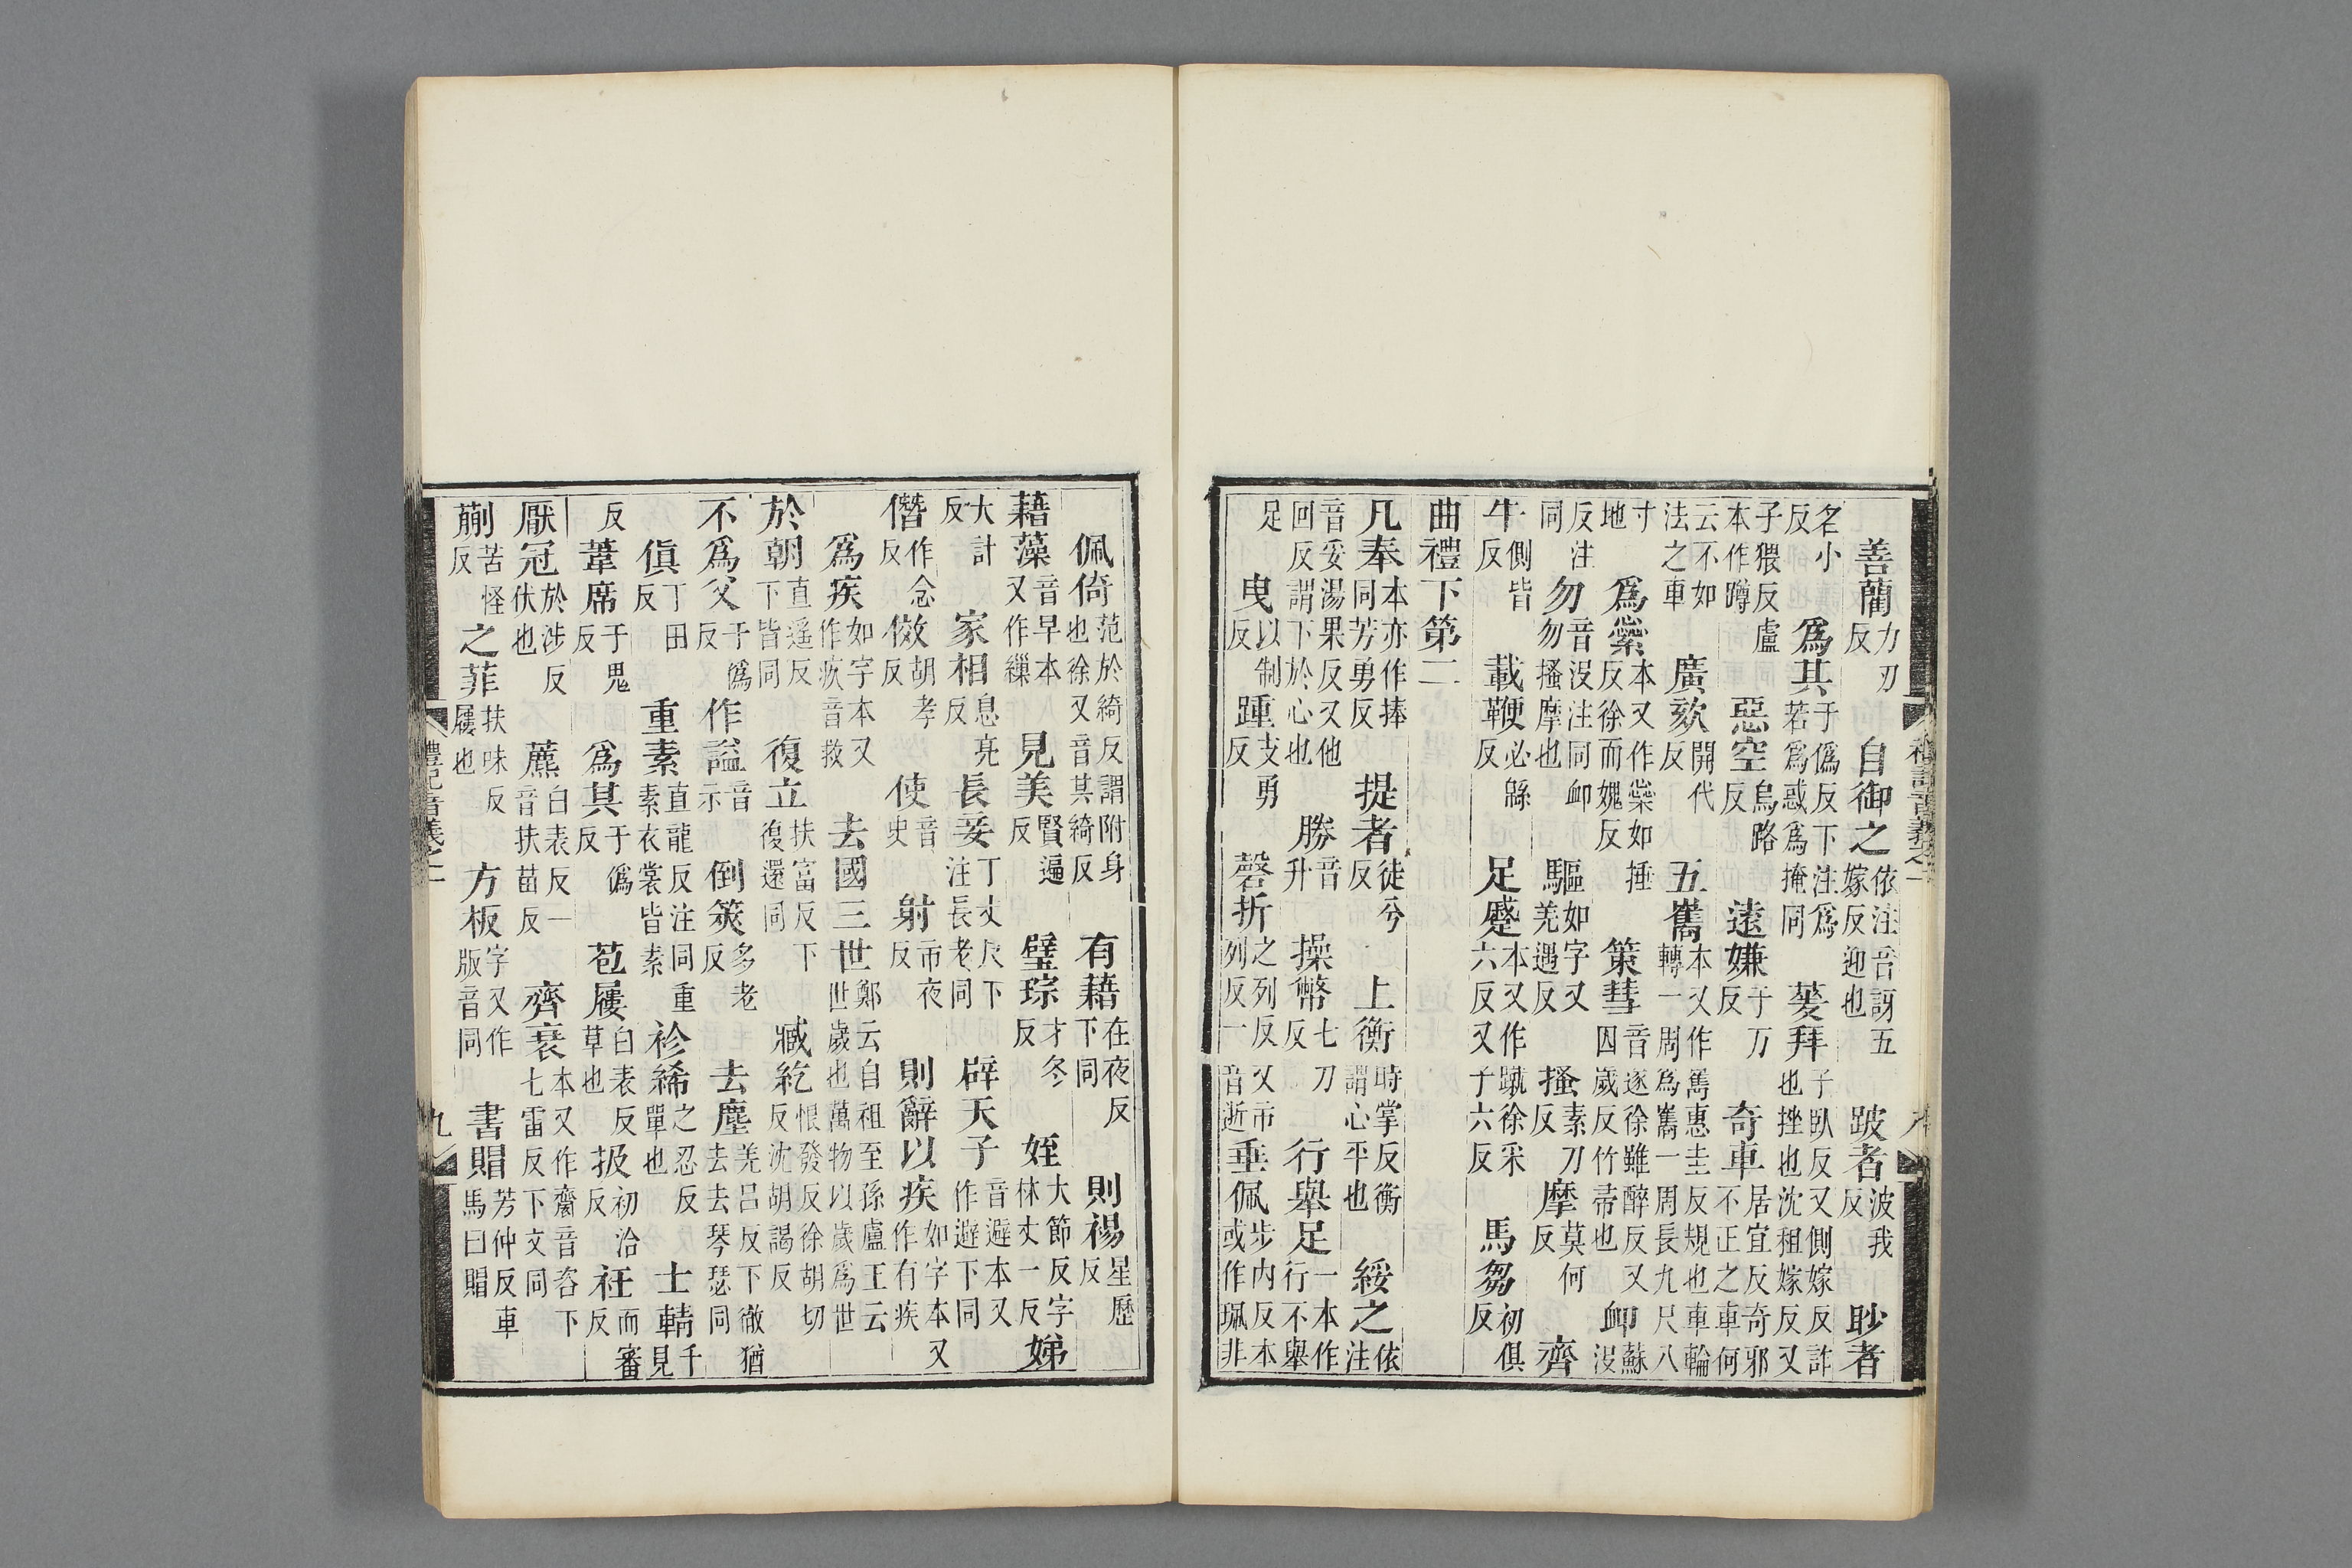 善藺力刃反　自御之依注音訝五嫁反迎也　跛者波我反　眇者
名小反　爲其于僞反下注爲若爲惑爲掩同　蓌拜子臥反又側嫁反詐也挫也沈租嫁反又
子猥反盧本作蹲　惡空烏路反　遠嫌于万反　奇車居宜反奇邪不正之車何
云不如法之車　廣欬開代反　五巂本又作雟惠圭反規也車輪轉一周爲巂一周長九尺八
寸地　爲縈本又作蘂如捶反徐而媿反　策彗音遂徐雖醉反又囚歲反竹帚也　卹蘇没
反注同　勿音没注同卹勿搔摩也　驅如字又羌遇反　搔素刀反　摩莫何反　齊
牛側皆反　載鞭必緜反　足蹙本又作蹴徐采六反又子六反　馬芻初俱反
曲禮下第二
凡奉本亦作捧同芳勇反　提者徒兮反　上衡時掌反衡謂心平也　綏之依注
音妥湯果反又他回反謂下於心也　勝音升　操幣七刀反　行舉足一本作行不舉
足　曳以制反　踵支勇反　磬折之列反又市列反一音逝　垂佩步内反本或作珮非
佩倚范於綺反謂附身也徐又音其綺反　有藉在夜反下同　則裼星歷反
藉藻音早本又作繅　見美賢遍反　璧琮才冬反　姪大節反字林丈一反　娣
大計反　家相息亮反　長妾丁丈反下注長老同　辟天子音避本又作避下同
僭作念反　傚胡孝反　使音史　射市夜反　則辭以疾如字本又作有疾
爲疾如字本又作疚音救　去國三世鄭云自祖至孫盧王云世歲也萬物以歲爲世
於朝直遥反下皆同　復立扶富反下復還同　臧紇恨發反徐胡切反沈胡謁反
不爲父于僞反　作謚音示　倒筴多老反　去塵羌呂反下徹猶去去琴瑟同
傎丁田反　重素直龍反注同重素衣裳皆素　袗絺之忍反單也　士輤千見
反　葦席于鬼反　爲其于僞反　苞屨白表反草也　扱初洽反　衽而審反
厭冠於涉反伏也　藨白表反一音扶苗反　齊衰本又作齌音咨下七雷反下文同
蒯苦怪反　之菲扶味反屨也　方板字又作版音同　書賵芳仲反車馬曰賵
禮記音義之一　九